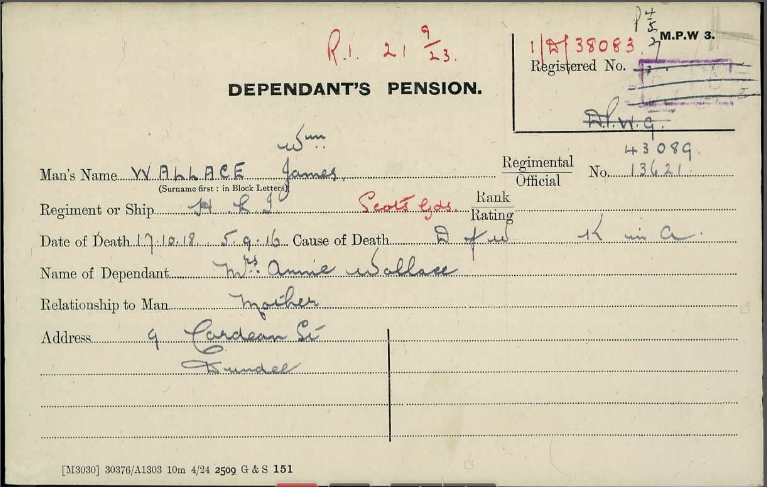 R.1. 21 9/23.
P 4/5/7
M.P.W 3.
1/D/38083.
Registered No.
DEPENDANT'S PENSION.
D.P.W.G.
Wm
43089.
Man's Name WALLACE James. Regimental/Official No. 13621
(Surname first: in Block Letters)
Regiment or Ship H L I Scots Gds. Rank/Rating
Date of Death 17.10.18 5.9.16 Cause of Death D of W K in A.
Name of Dependant Mrs. Annie Wallace
Relationship to Man Mother
Address 9 Cardean St
Dundee
[M3030] 30376/A1303 10m 4/24 2509 G & S 151